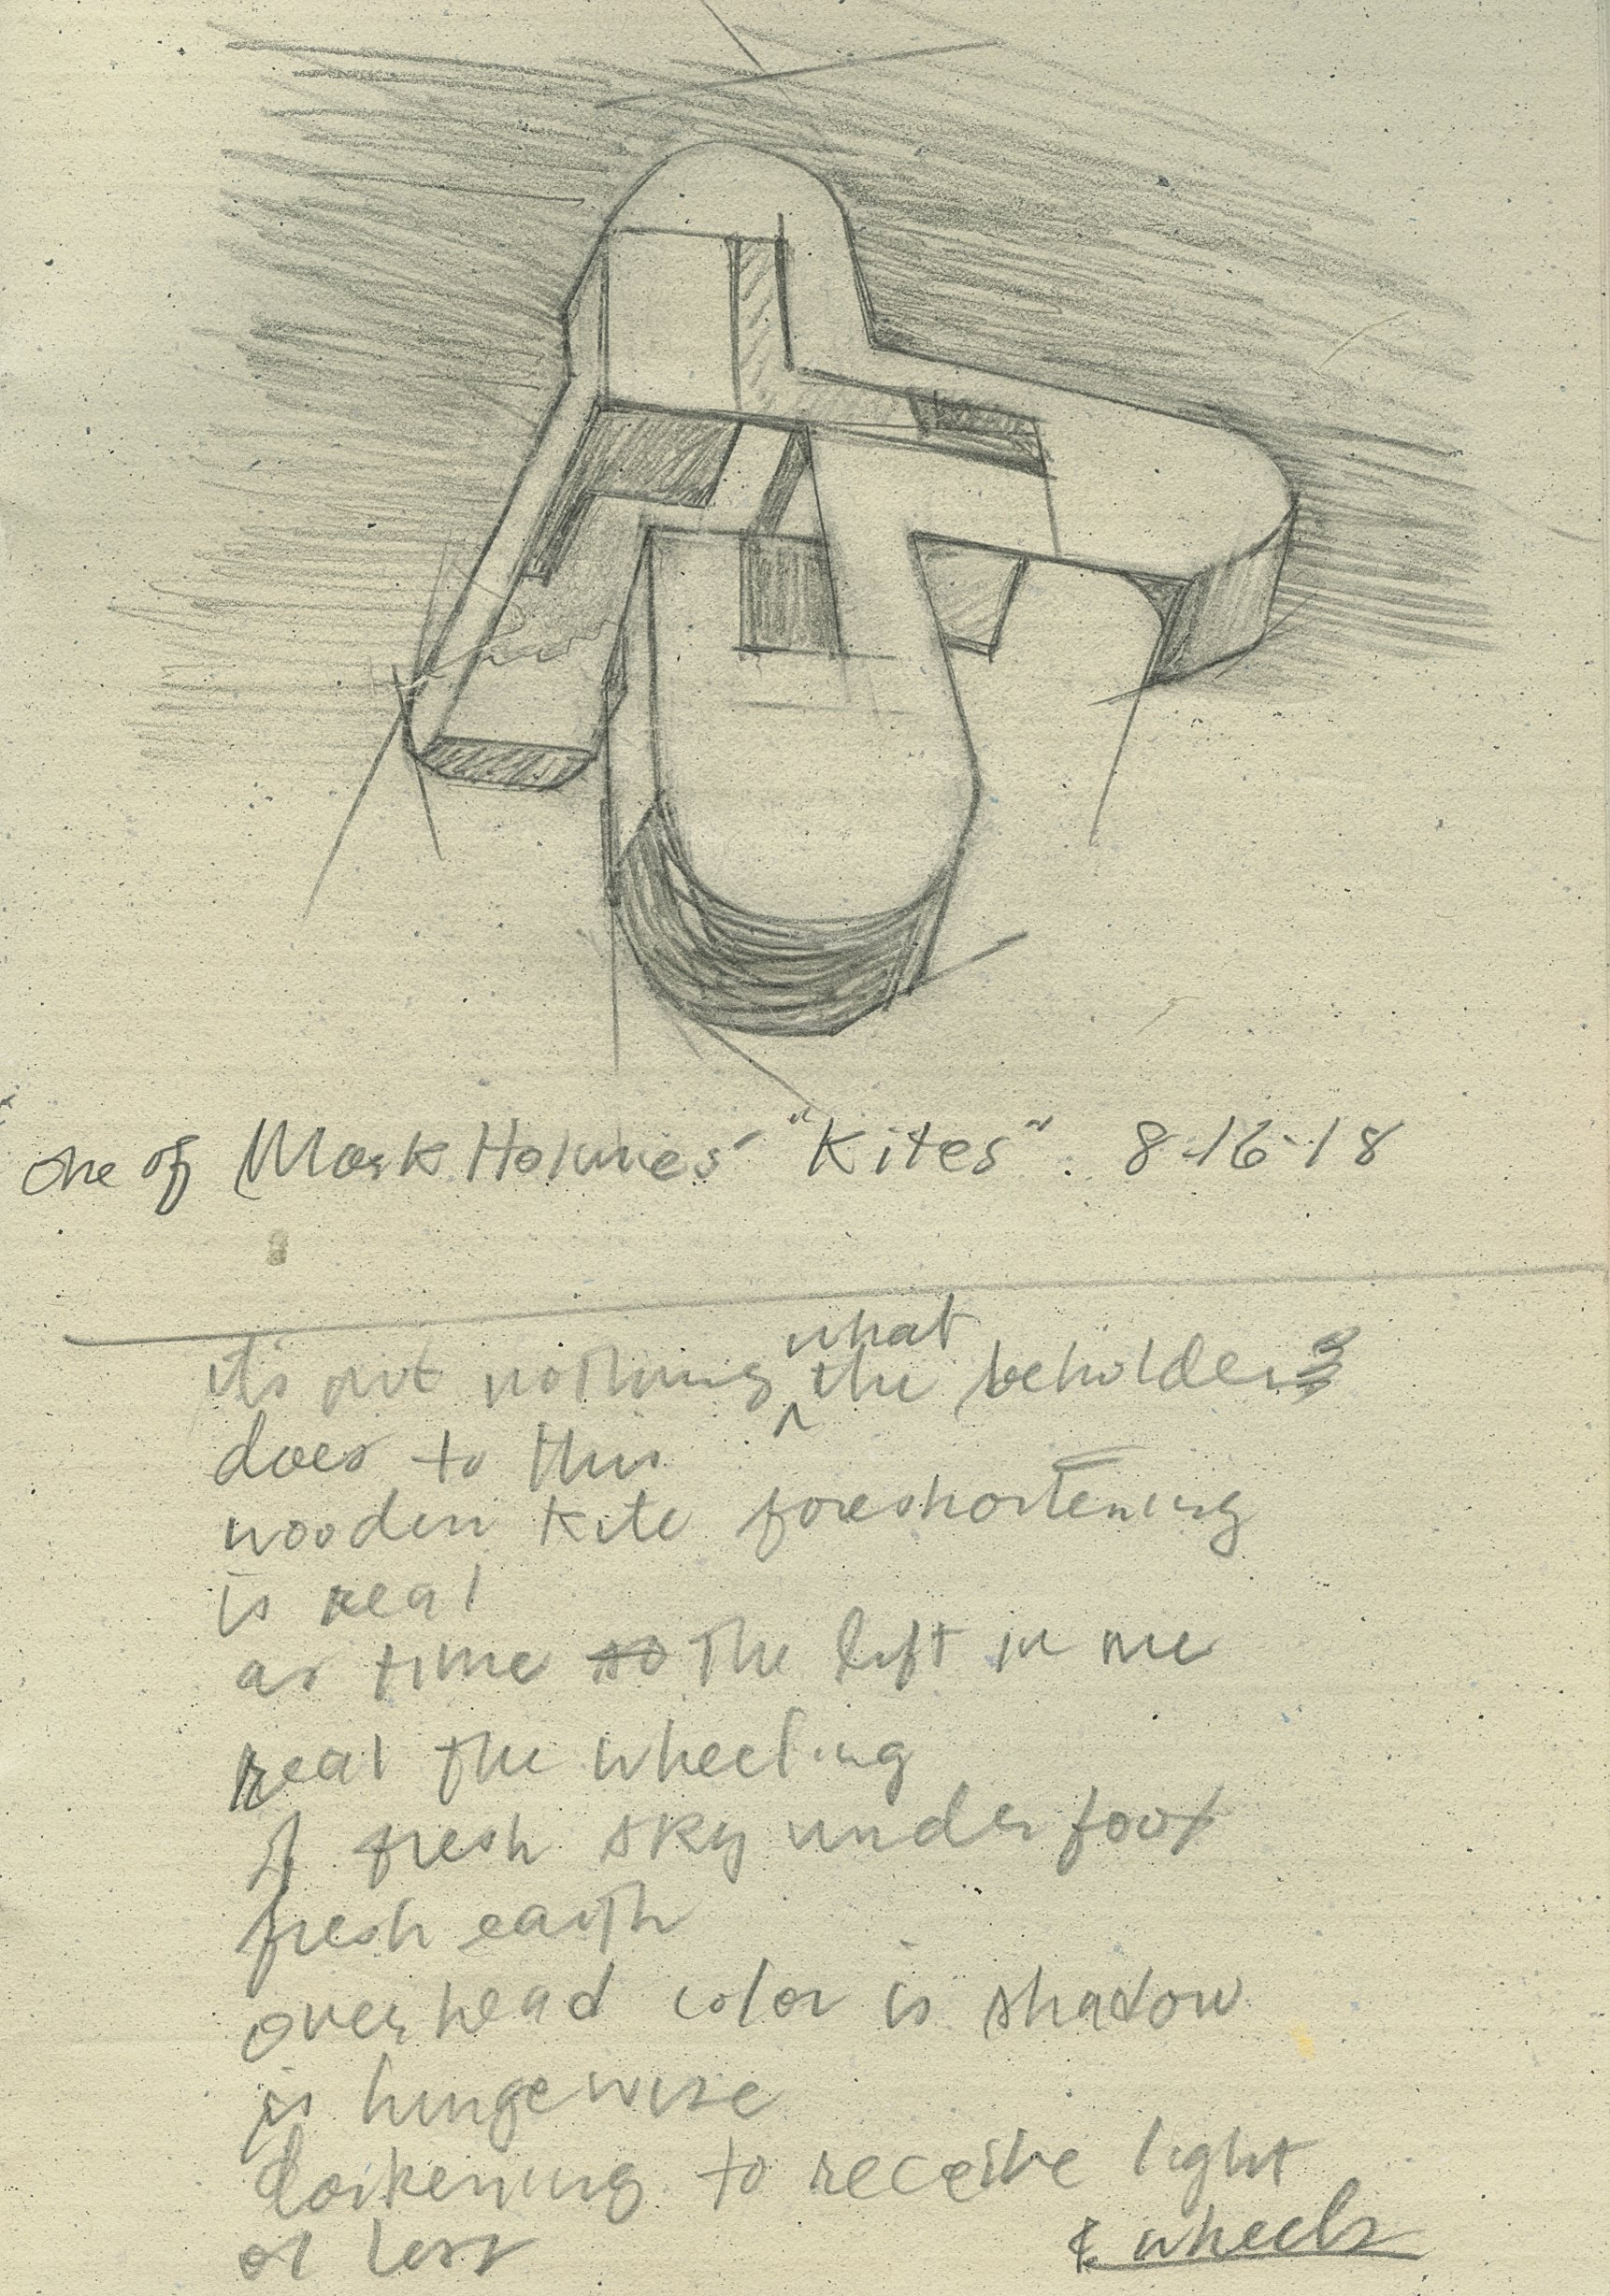 One of Mark Holmes' "Kites". 8-16-18
it's not nothing what the beholder
does to this
wooden kite foreshortening
is real
as time so the left in me
real the wheeling
of fresh sky underfoot
fresh earth
overhead color is shadow
is hingewise
darkening to receive light
or less & wheels